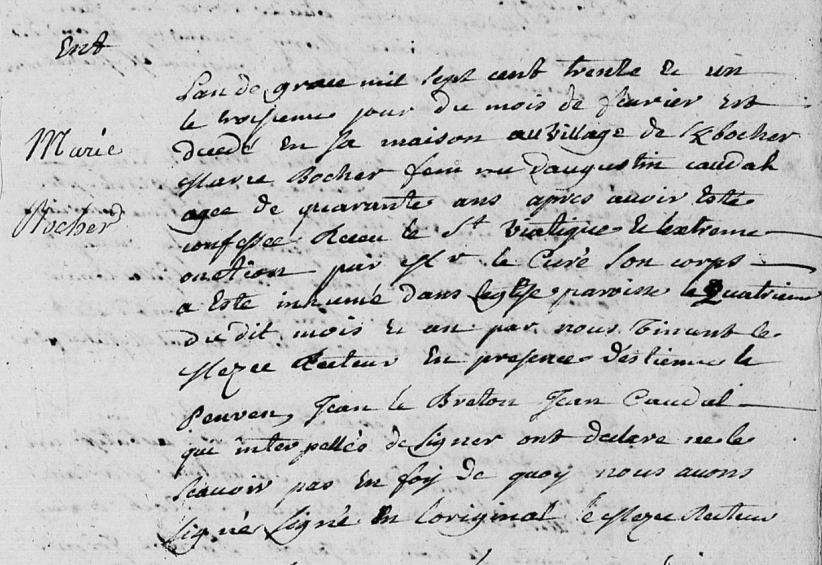 Ent
Marie
Rocher
Lan de grace mil sept cent trente & un
le troisieme jour du mois de fevrier est
decedé en sa maison au village de Kbocher
Marie Bocher femme d'augustin caudal
agee de quarante ans apres avoir Esté
confessée Receu le St Viatique & lextreme
onction par Mr le Curé Son corps
a Esté inhumé dans leglise paroisse le Quatrieme
du dit mois & an par nous Vincent le
Mezec Recteur En presence d'Estienne le
Penven, Jean le Breton Jean Caudal
qui interpellés de signer ont declare ne le
scavoir pas En foy de quoy nous avons
signé Signé En loriginal le Mezec Recteur